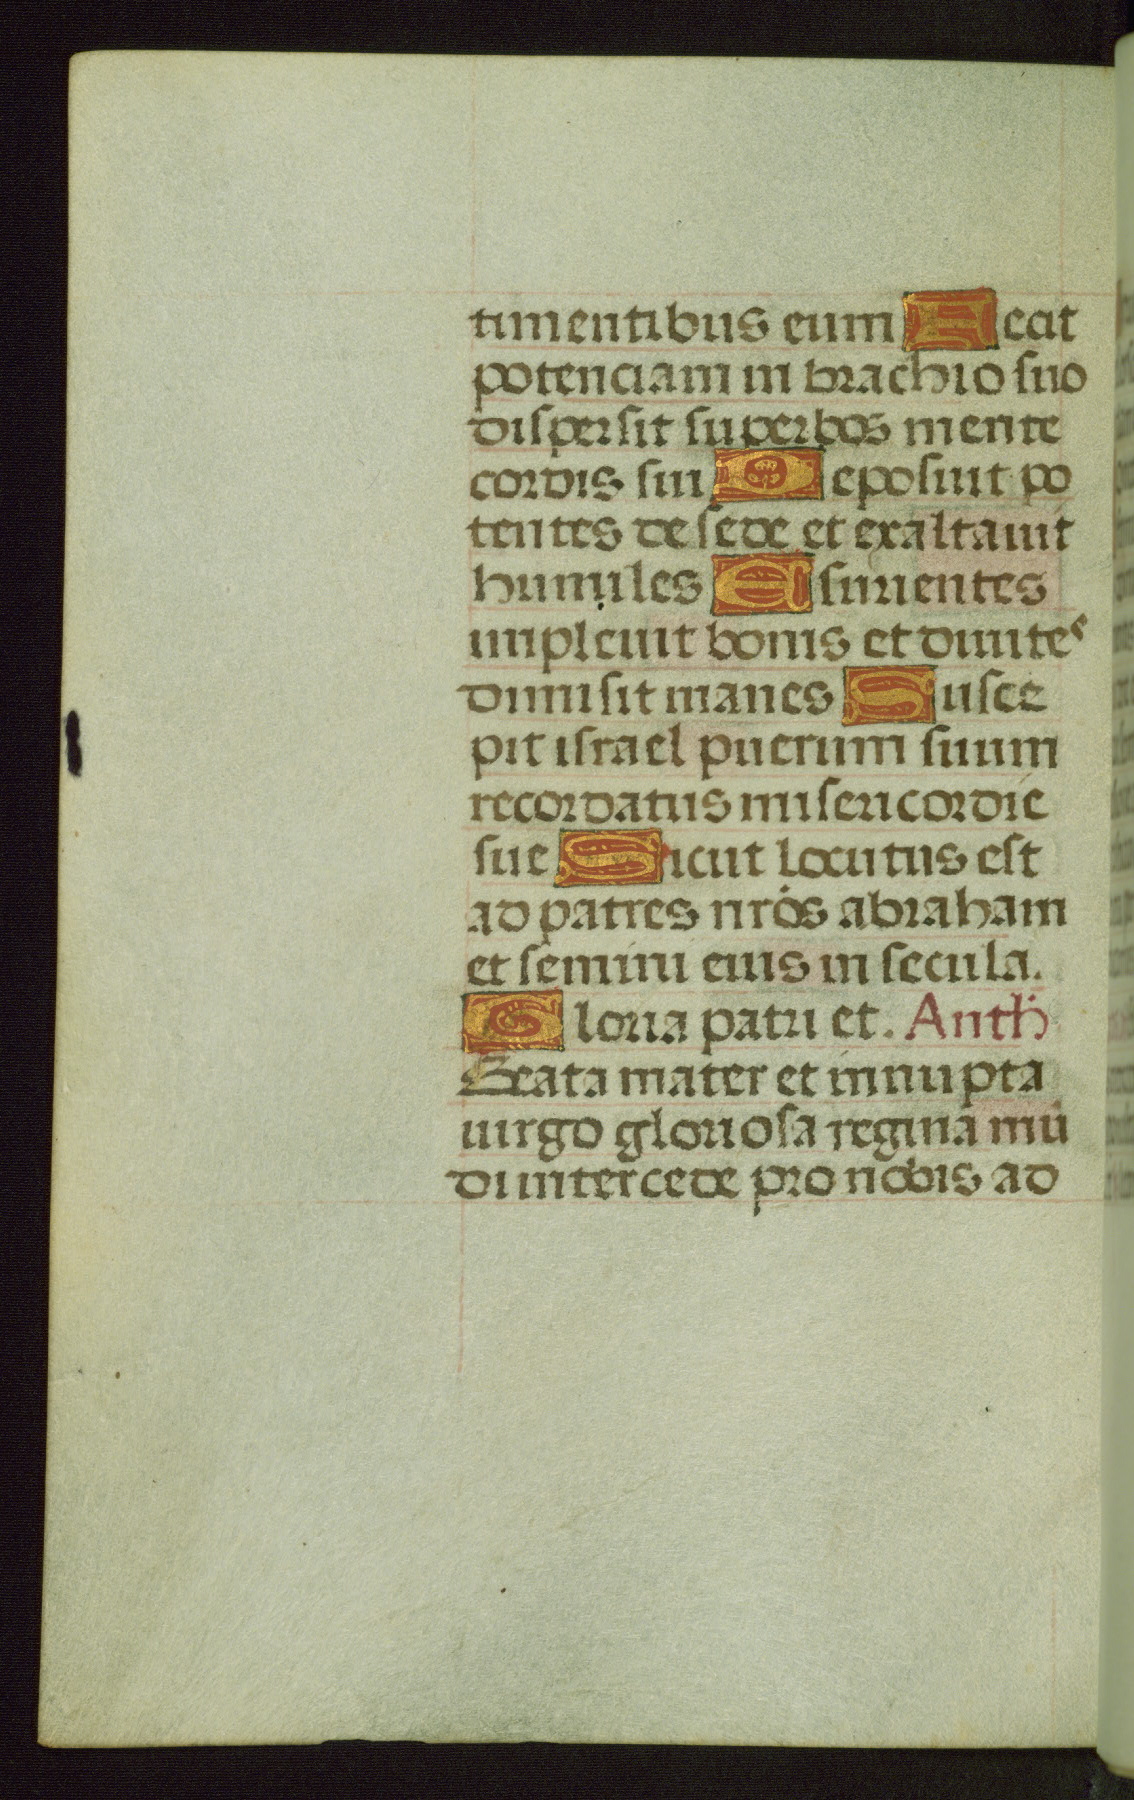 timentibus eum Fecit
potenciam in brachio suo
dispersit superbos mente
cordis sui Deposuit po
tentes de sede et exaltauit
humiles Esurientes
impleuit bonis et diuites
dimisit inanes Susce
pit israel puerum suum
recordatus misericordie
sue Sicut locutus est
ad patres nr̄os abraham
et semini eius in secula.
Gloria patri et. Anth̄
Beata mater et innupta
uirgo gloriosa regina mū
di intercede pro nobis ad